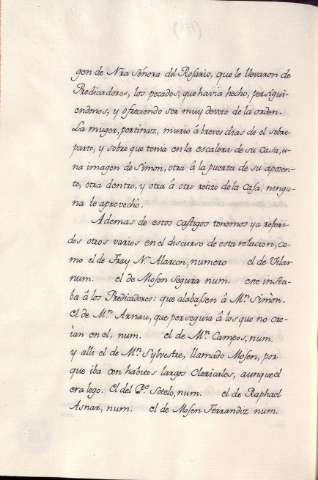 gon de Nra Señora del Rosario, que le llevaron de
Predicadores, los pecados, que havia hecho, persigui-
endonos, y ofreciendo ser muy devoto de la orden.
La muger, pertinaz, murio á breves dias de el sobre-
parto, y sobre que tenia en la escalera de su Casa, u-
na imagen de Simon, otra á la puerta de su aposen-
to, otra dentro, y otra á otro retrete de la Casa, ningu-
na le aprovechó.
Ademas de estos castigos tenemos ya referi-
dos otros varios en el discurso de esta relacion, co-
mo el de Fray N. Alarcon, numero el de Vilar
num. el de Mosen Segura num. este insta-
ba á los Predicadores: que alabassen á Mn. Simon.
El de Mn. Arnau, que perseguia á los que no cre-
ian en el, num. el de Mn. Campos, num.
y alli el de Mn. Sylvestre, llamado Mosen, por-
que iba con habitos largos Clericales, aunque el
era lego. El del Pe. Sotelo, num. el de Raphael
Asnar, num. el de Mosen Ferrandiz num.